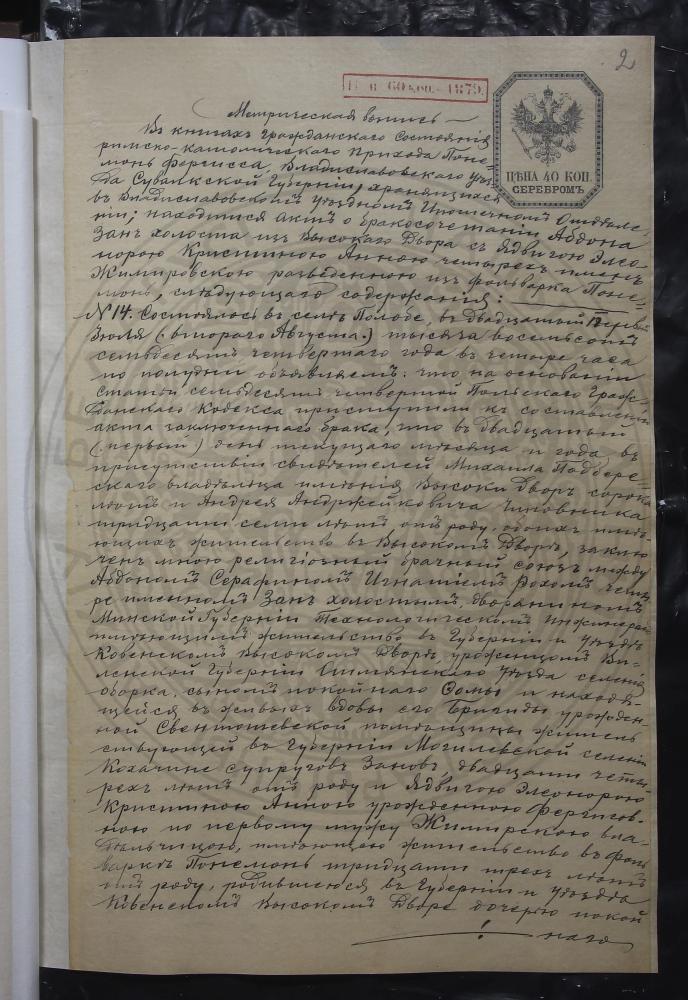 2
11 и 60 коп. 1879.
ЦѢНА 40 КОП.
СЕРЕБРОМЪ
Метрическая выпись
Въ книгахъ гражданскаго состоянія
римско-католическаго прихода Поне-
монь Фергисса, Владиславовскаго уѣз-
да Сувалкской Губерніи, хранящихся
въ Владиславовскомъ уѣздномъ Ипотечномъ Отдѣле-
ніи, находится актъ о бракосочетаніи Абдона
Занъ холоста изъ Высокаго Двора съ Ядвигою Элео-
норою Кристиною Анною четырехъ именъ
Жимировскою разведенною изъ фольварка Поне-
монь, слѣдующаго содержанія:
№ 14. Состоялось въ селѣ Полобе, въ двадцатый первый
Іюля (втораго Августа) тысяча восемьсотъ
семьдесятъ четвертаго года въ четыре часа
по полудни объявляемъ: что на основаніи
статьи семьдесятъ четвертой Польскаго Граж-
данскаго Кодекса приступили къ составленію
акта заключеннаго брака, что въ двадцатый
(первый) день текущаго мѣсяца и года, въ
присутствіи свидѣтелей Михаила Подбере-
скаго владѣльца имѣнія Высоки Дворъ сорока
лѣтъ и Андрея Андржейковича чиновника
тридцати семи лѣтъ отъ роду, обоихъ имѣ-
ющихъ жительство въ Высокомъ Дворѣ, заклю-
ченъ мною религіозный брачный союзъ между
Абдономъ Серафиномъ Игнатіемъ Рохомъ четы-
ре именномъ Занъ холостымъ, дворяниномъ
Минской Губерніи Технологическомъ Инженеромъ
имѣющимъ жительство въ Губерніи и уѣздѣ
Ковенскомъ Высокомъ Дворѣ, уроженцомъ Ви-
ленской Губерніи Ошмянскаго уѣзда селенія
Оборка, сыномъ покойнаго Фомы и находя-
щейся въ живыхъ вдовы его Бригиды урожден-
ной Свентожевской помѣщицы житель-
ствующей въ Губерніи Могилевской селеніи
Кохачине супруговъ Зановъ, двадцати четы-
рехъ лѣтъ отъ роду и Ядвигою Элеонорою
Кристиною Анною урожденною Фергисов-
ною по первому мужу Жимирскою вла-
дѣльчицою, имѣющею жительство въ фоль-
варкѣ Понемонь тридцати трехъ лѣтъ
отъ роду, родившеюся въ Губерніи и уѣздѣ
Ковенскомъ Высокомъ Дворѣ дочерью покой
наго